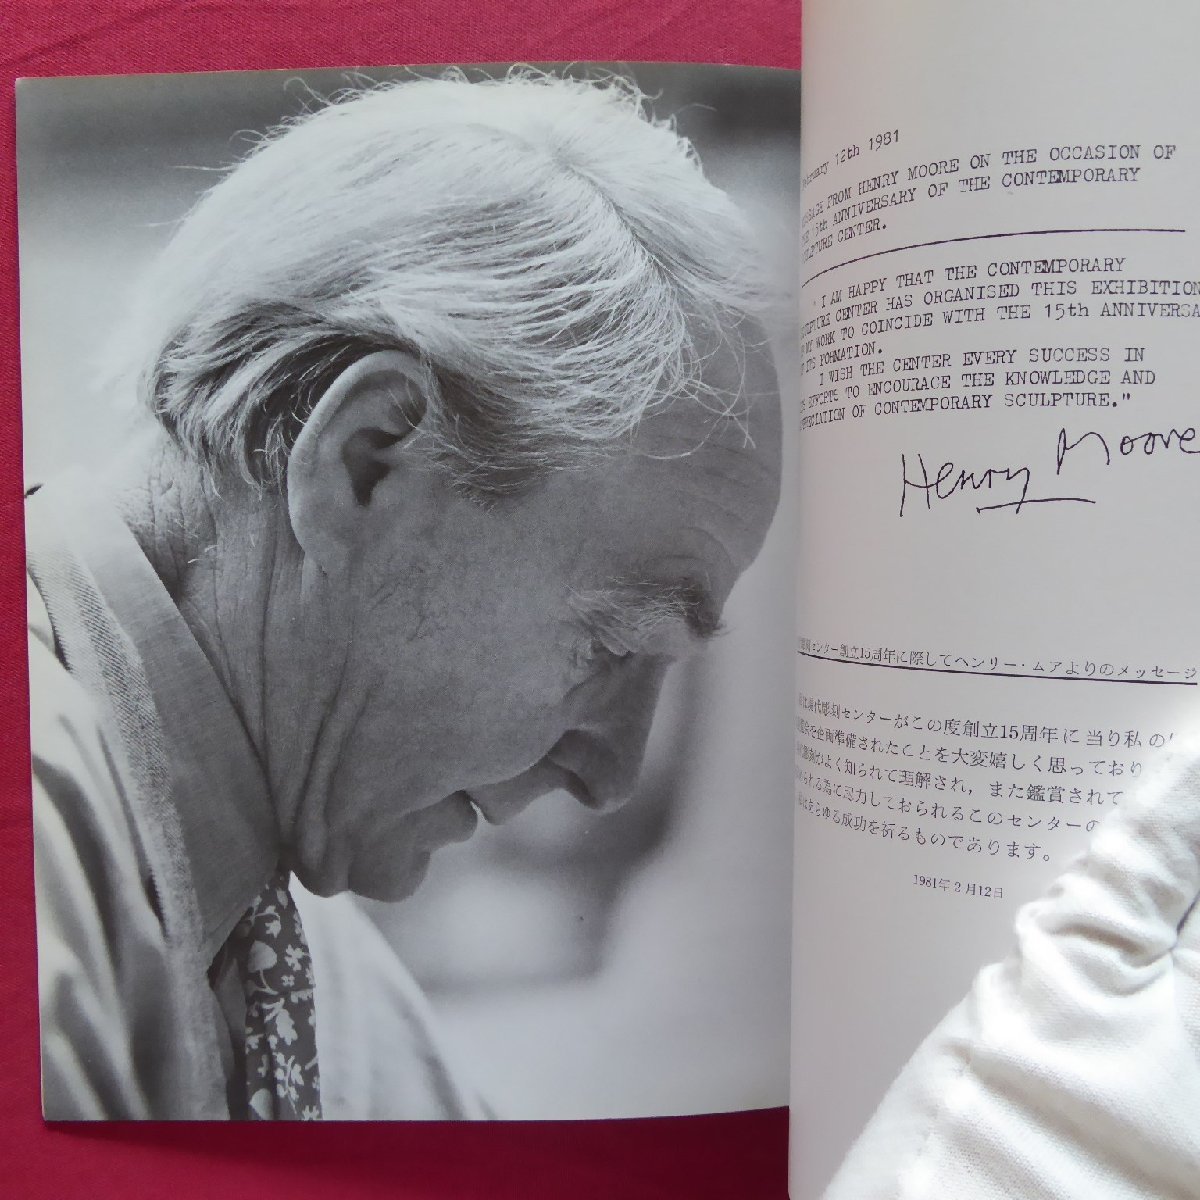 12th 1981
FROM HENRY MOORE ON THE OCCASION OF
15th ANNIVERSARY OF THE CONTEMPORARY
CENTER.
" I AM HAPPY THAT THE CONTEMPORARY
CENTER HAS ORGANISED THIS EXHIBITION
MY WORK TO COINCIDE WITH THE 15th ANNIVERSA
ITS FORMATION.
I WISH THE CENTER EVERY SUCCESS IN
EFFORTS TO ENCOURAGE THE KNOWLEDGE AND
OF CONTEMPORARY SCULPTURE."
Henry Moore
センター創立15周年に際してヘンリー・ムアよりのメッセージ
現代彫刻センターがこの度創立15周年に当り私の
企画準備されたことを大変嬉しく思っており
よく知られて理解され，また鑑賞されて
尽力しておられるこのセンターの
あらゆる成功を祈るものであります。
1981年2月12日